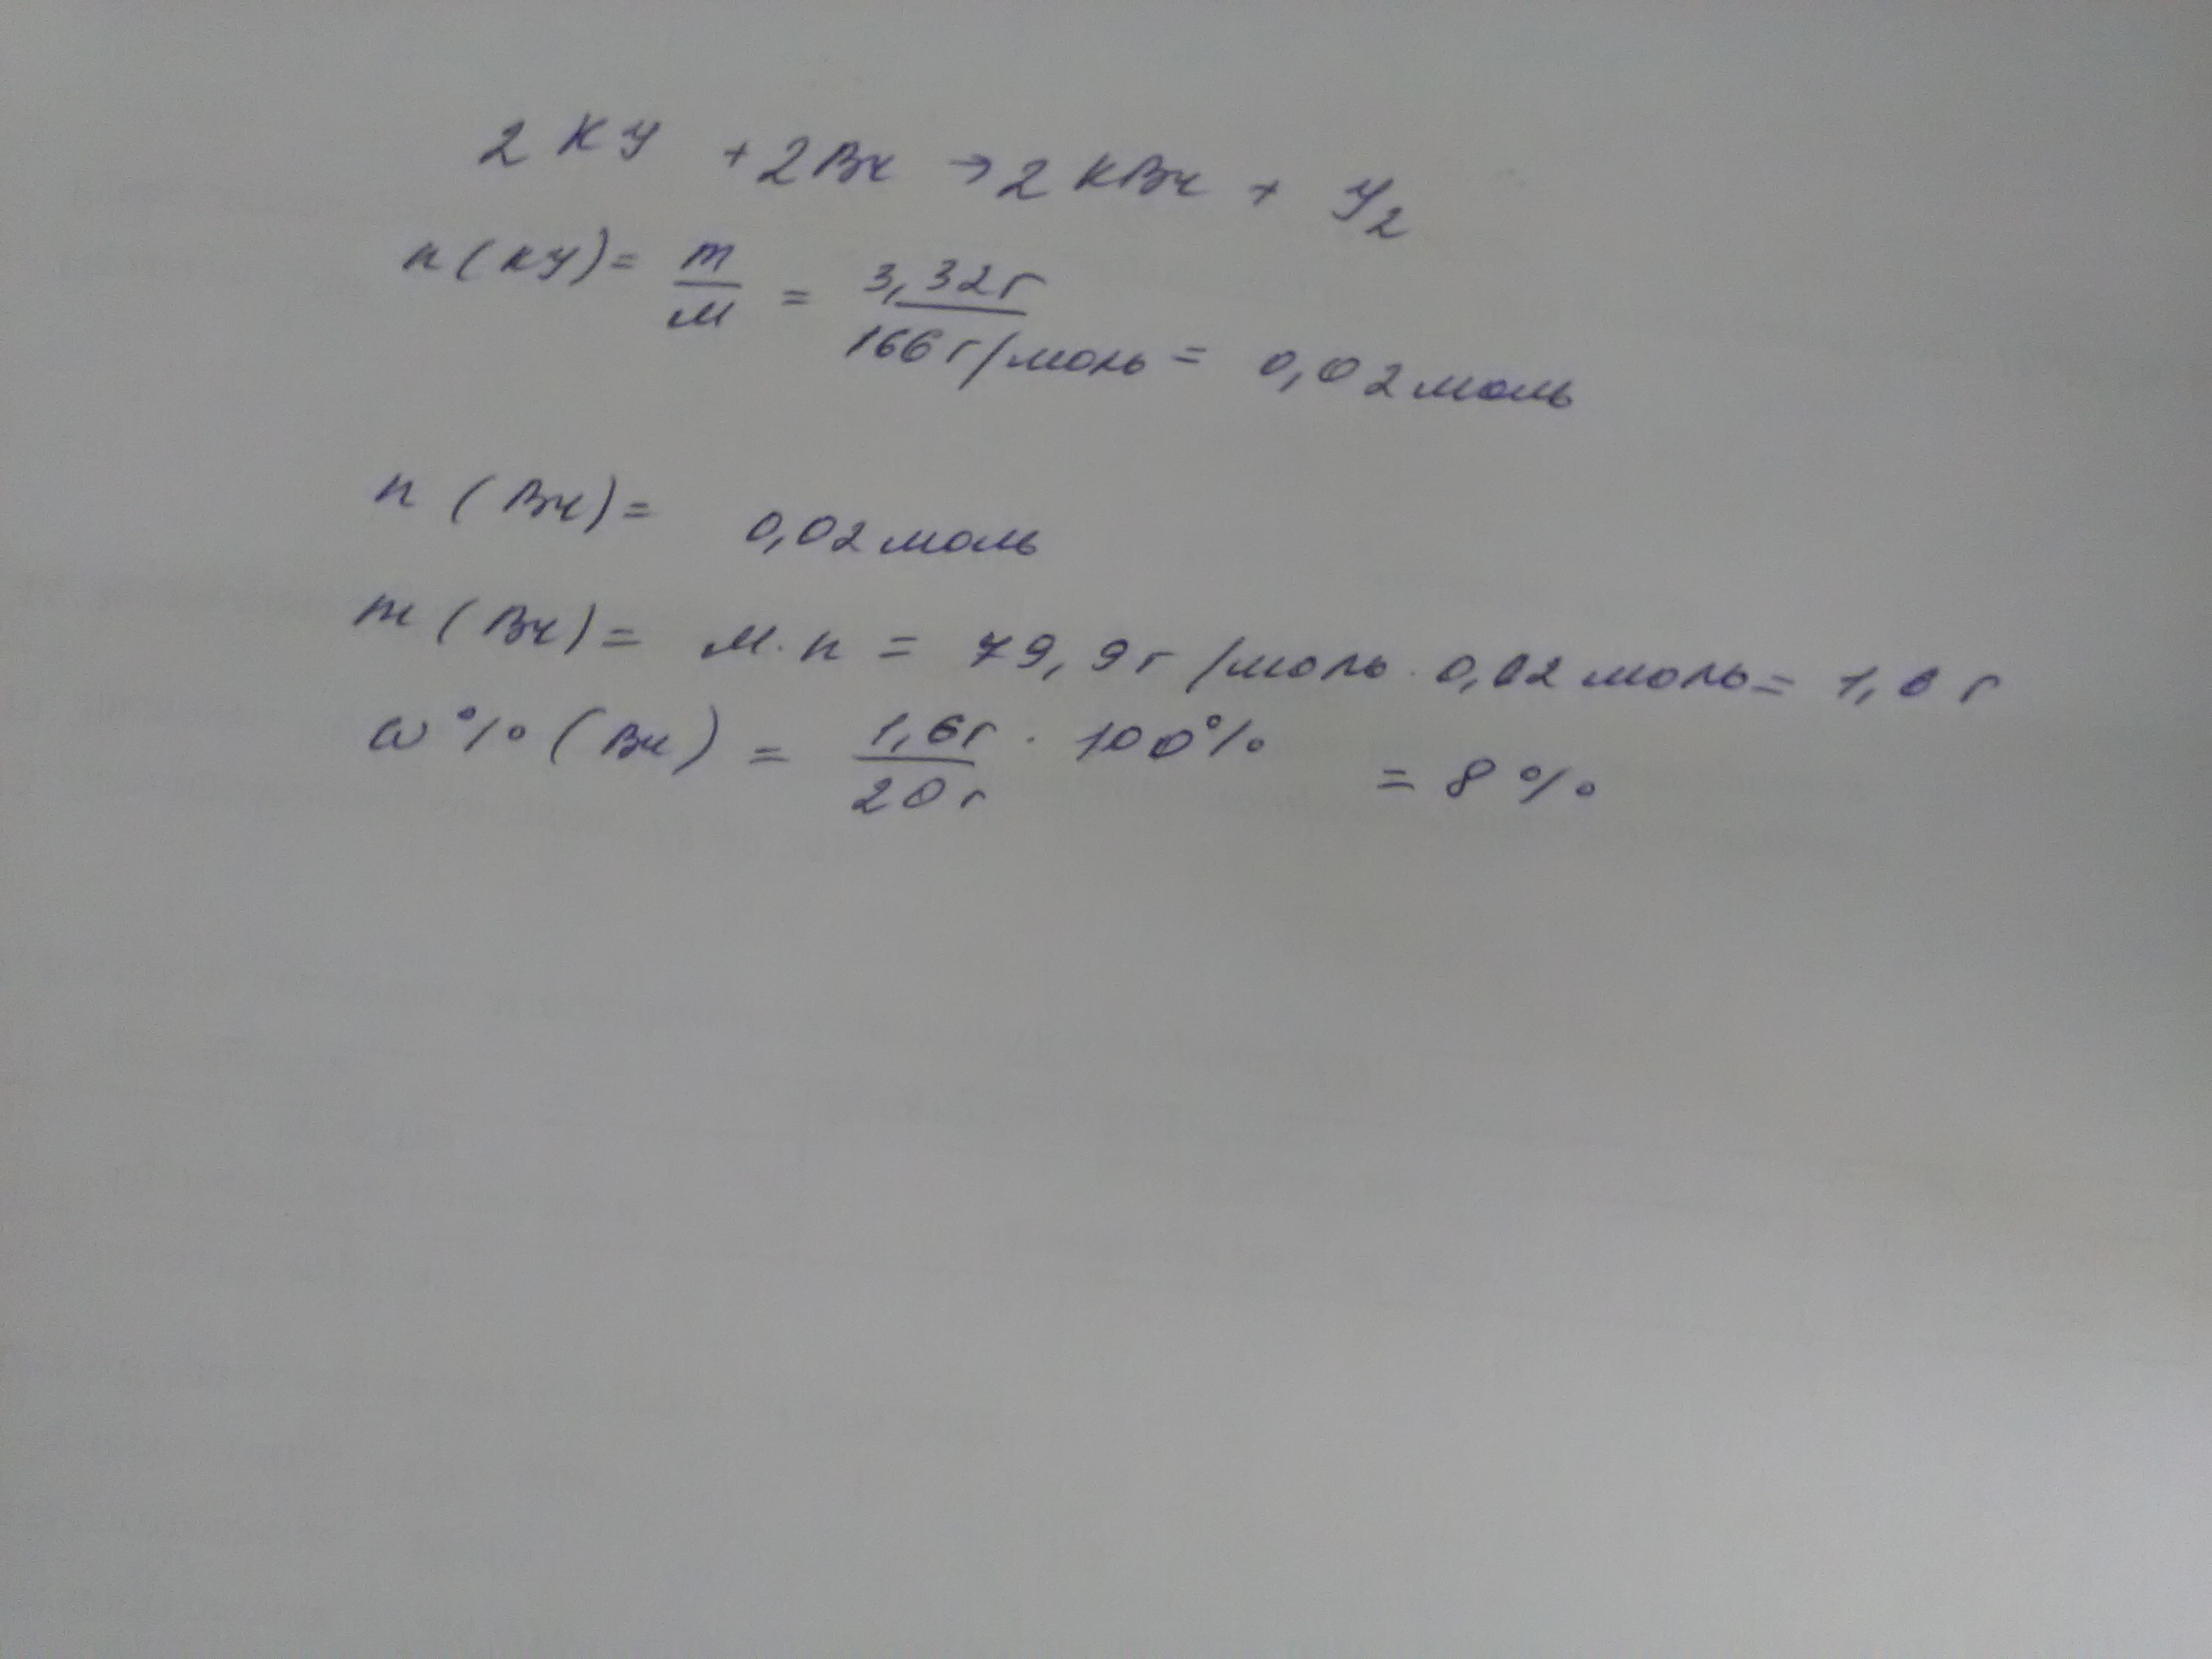 2 KJ + 2 Br → 2 KBr + J₂
n (KJ) = m/M = 3,32 г / 166 г/моль = 0,02 моль
n (Br) = 0,02 моль
m (Br) = M · n = 79,9 г/моль · 0,02 моль = 1,6 г
ω % (Br) = 1,6 г / 20 г · 100 % = 8 %